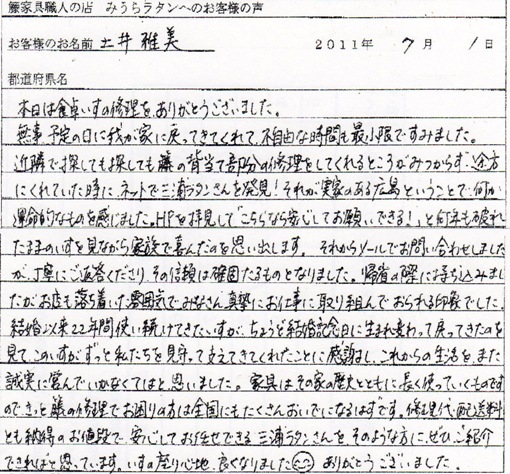 籐家具職人の店 みうらラタンへのお客様の声
お客様のお名前 土井 雅美 2011年 7月 1日
都道府県名
本日は食卓いすの修理を、ありがとうございました。
無事、予定の日に我が家に戻ってきてくれて、不自由な時間も最小限ですみました。
近隣で探しても探しても籐の背当て部分の修理をしてくれるところがみつからず、途方
にくれていた時に、ネットで三浦ラタンさんを発見!それが実家のある広島ということで、何か
運命的なものを感じました。HPを拝見して「こちらなら安心してお願いできる!」と何年も破れ
たままのいすを見ながら家族で喜んだのを思い出します。それからメールでお問い合わせしました
が、丁寧にご返答くださり、その信頼は確固たるものとなりました。帰省の際に持ち込みまし
たが、お店も落ち着いた雰囲気で、みなさん真摯にお仕事に取り組んでおられる印象でした。
結婚以来22年間使い続けてきたいすが、ちょうど結婚記念日に生まれ変わって戻ってきたのを
見て、このいすがずっと私たちを見守って支えてきてくれたことに感謝し、これからの生活を、また
誠実に営んでいかなくてはと思いました。家具はその家の歴史とともに長く使っていくものです
ので、きっと籐の修理でお困りの方は全国にもたくさんおいでになるはずです。修理代、配送料
とも納得のお値段で、安心してお任せできる三浦ラタンさんを、そのような方に、ぜひ、ご紹介
できればと思っています。いすの座り心地、良くなりました ありがとうございました。